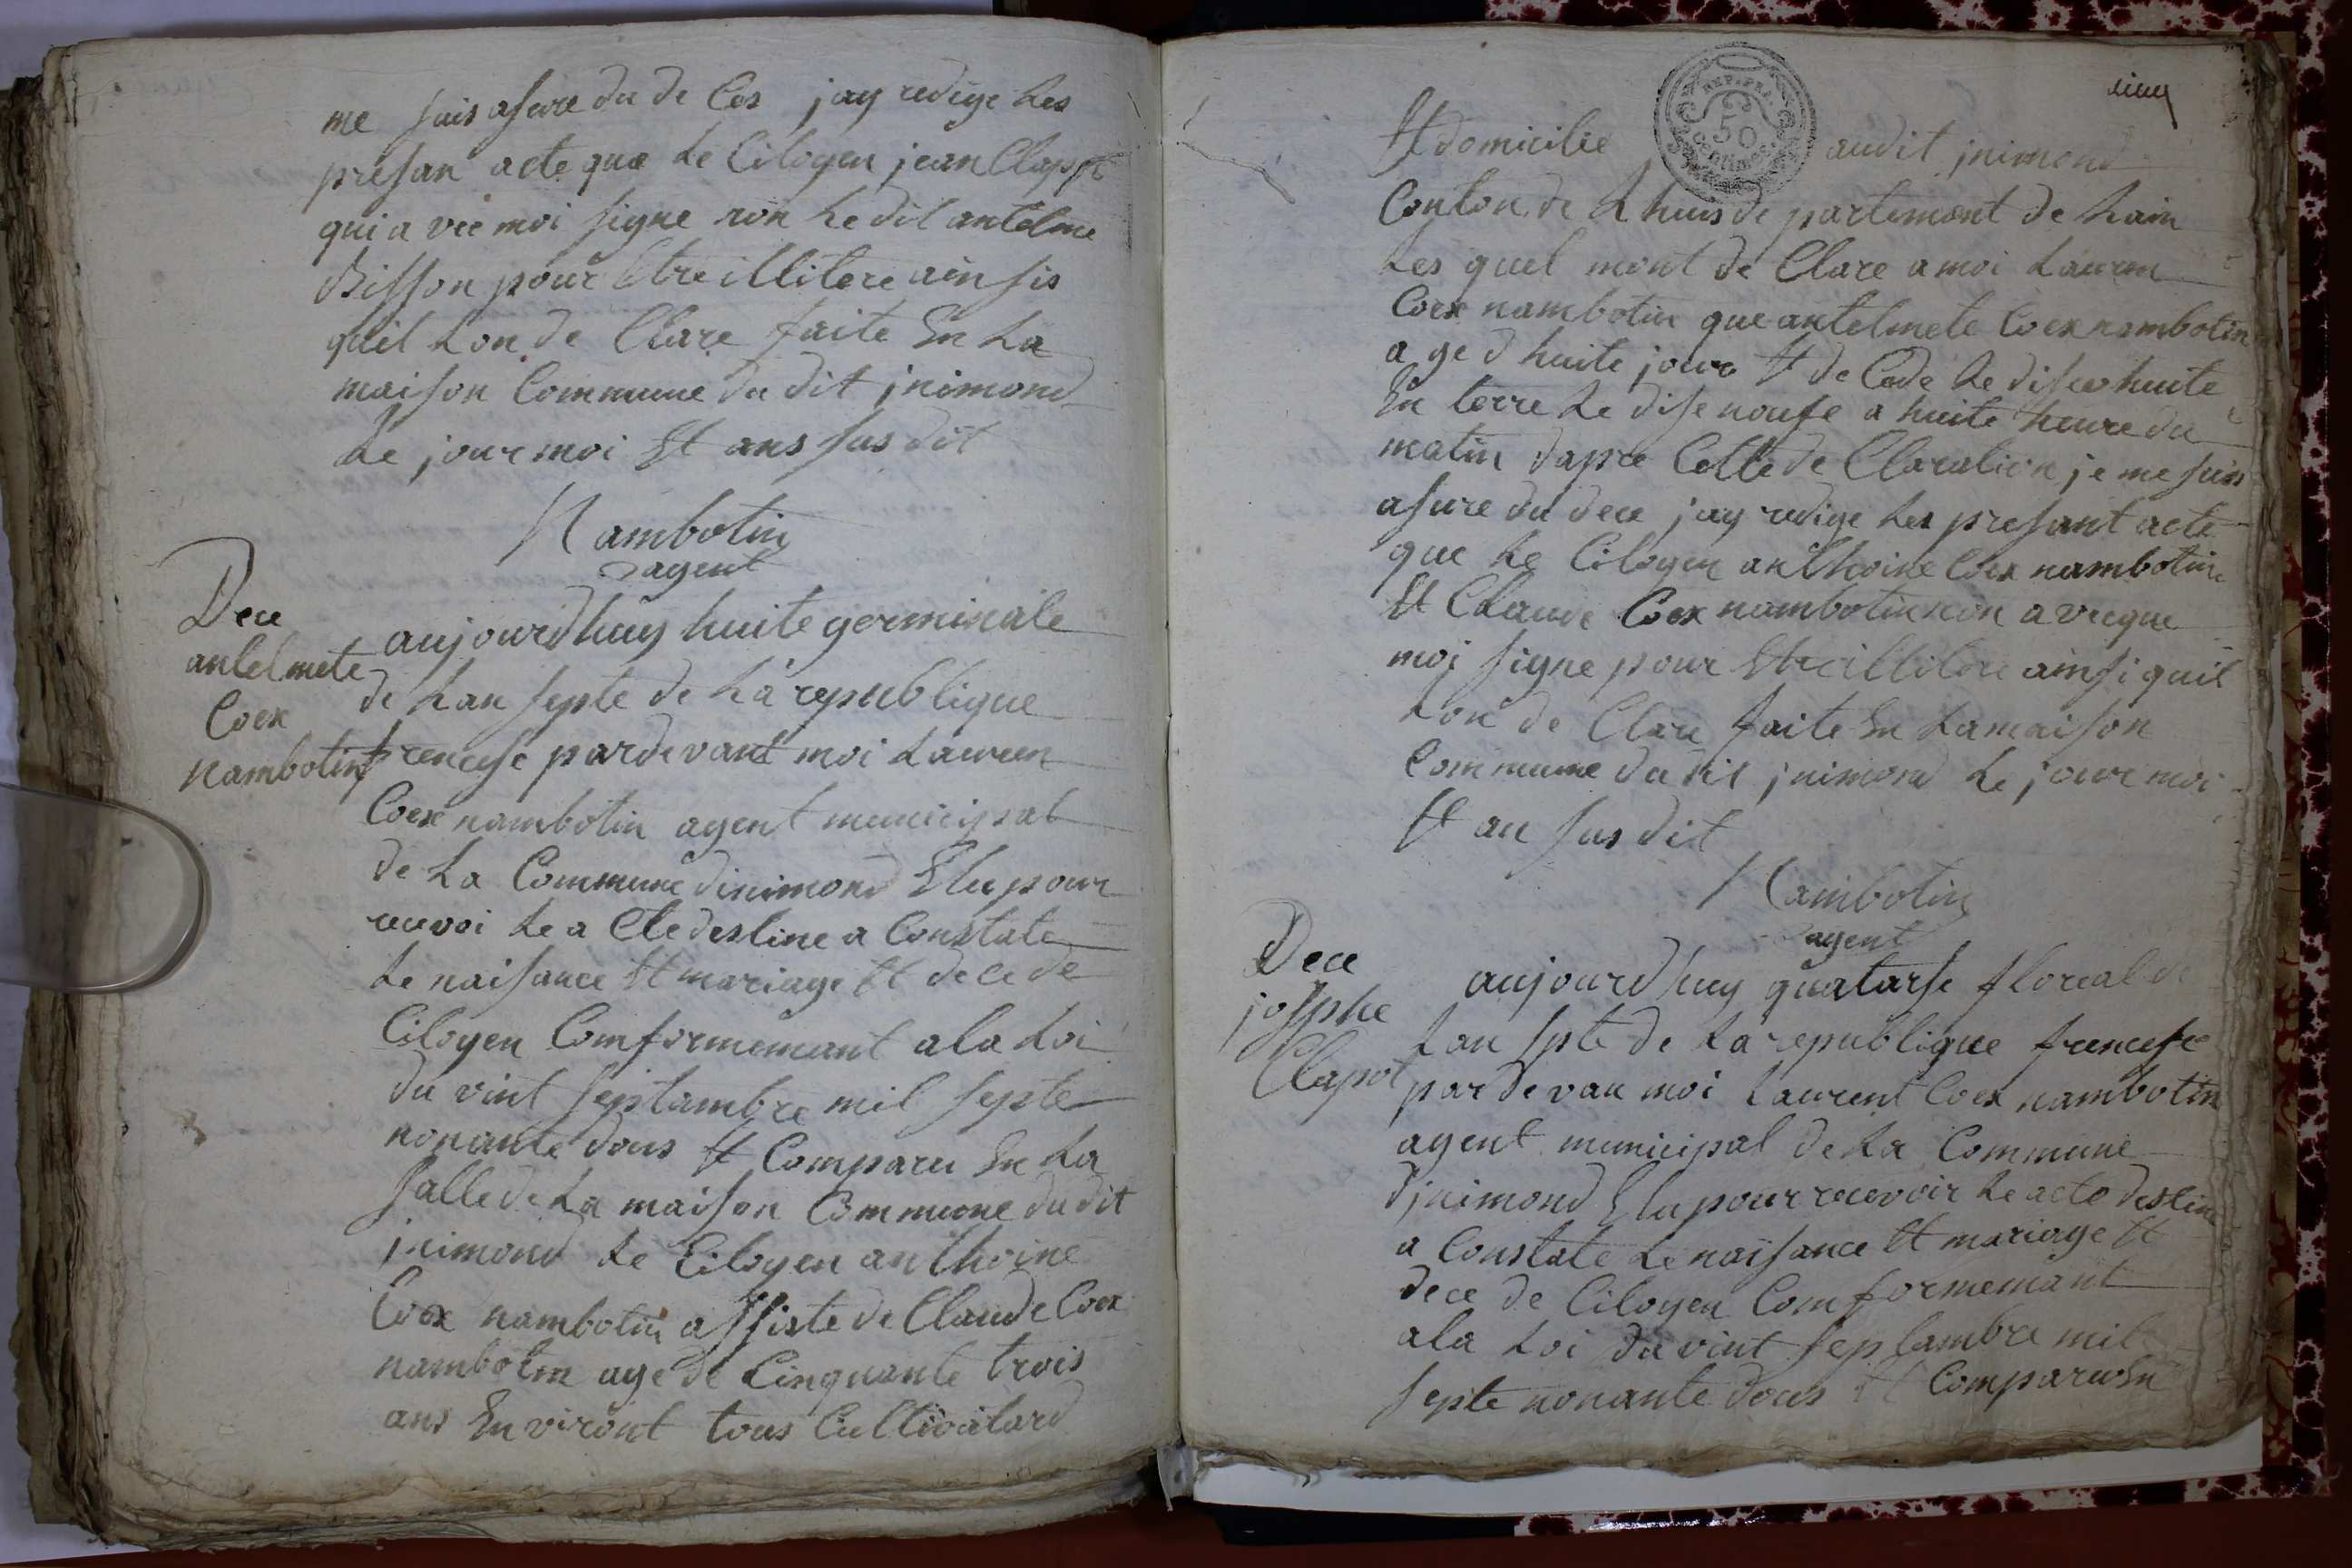 me suis asure du de Ces jay redige Les
presan acte que Le Citoyen jean Clapot
qui a vec moi signe non Le dit antelme
Bisson pour Etre illitere ainsis
quil Lon de Clare faite En La
maison Commune du dit jnimond
Le jour moi Et ans susdit
Nambotin
agent
Dece
antelmete
Coex
nambotin
aujourdhuy huite germinale
de Lan septe de La republique
frencese pardevant moi Lauren
Coex nambotin agent municipal
de La Commune dinimond Elu pour
recevoi Le a Cte destine a Constate
Le naisance Et mariage Et dece de
Citoyen Comformemant a la Loi
du vint septambre mil septe
nonante dous Et Comparu En La
salle de La maison Commune du dit
jnimond Le Citoyen anthoine
Coex nambotin assiste de Claude Coex
nambotin age de Cinquante trois
ans En viront tous Cultivatard
Et domicilie audit jnimond
REP. FRA.
50
Centimes
Conton de Lhuis de partemant de Lain
Les quel mont de Clare a moi Lauren
Coex nambotin que antelmete Coex nambotin
a ge d huite jour Et de Cede Le dise huite
En terre Le dise noufe a huite heure du
matin dapre Cette de Claration je me suis
asure du dece jay redige Les presant acte
que Le Citoyen anthoine Coex nambotin
Et Claude Coex nambotin non a vecque
moi signe pour Etre illitere ainsi quil
Lon de Clare faite En La maison
Commune du dit jnimond Le jour moi
Et an susdit
Nambotin
agent
Dece
josphe
Clapot
aujourdhuy quatarse floreal de
Lan spte de La republique francese
par de van moi Laurent Coex nambotin
agent municipal de La Commune
djnimond Elu pour recevoir Le acte destine
a Constate Le naisance Et mariage Et
dece de Citoyen Comformemant
ala Loi du vint septambre mil
septe nonante dous Et Comparu En